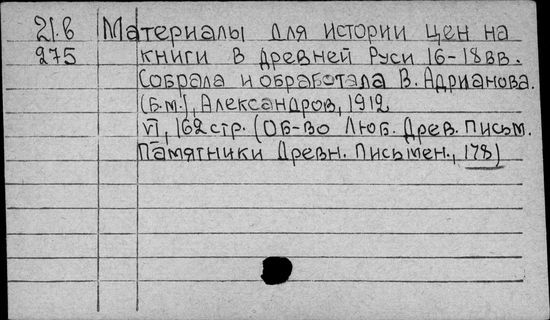 21.б Материалы для истории цен на
275 книги в древней Руси 16-18 вв.
Собрала и обработала В. Адрианова.
(Б.м.), Александров, 1912
VI, 162 стр. (Об-во Люб. Древ. Письм.
Памятники Древн. Письмен., 178)